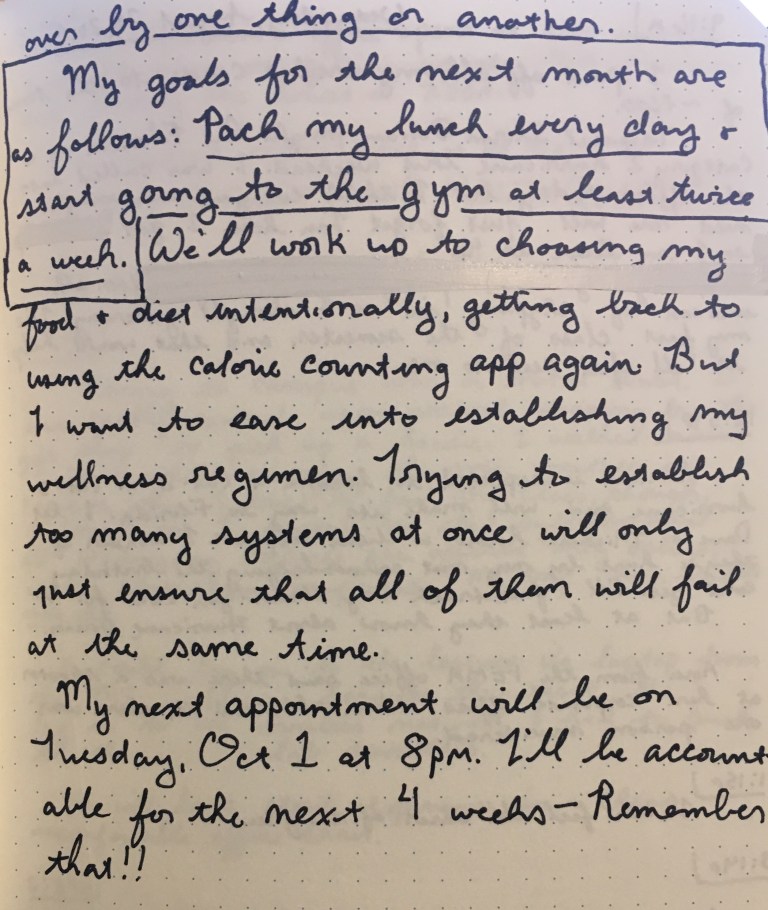 over by one thing or another.
My goals for the next month are
as follows: Pack my lunch every day +
start going to the gym at least twice
a week. We'll work up to choosing my
food + diet intentionally, getting back to
using the calorie counting app again. But
I want to ease into establishing my
wellness regimen. Trying to establish
too many systems at once will only
just ensure that all of them will fail
at the same time.
My next appointment will be on
Tuesday, Oct 1 at 8pm. I'll be account
able for the next 4 weeks - Remember
that!!